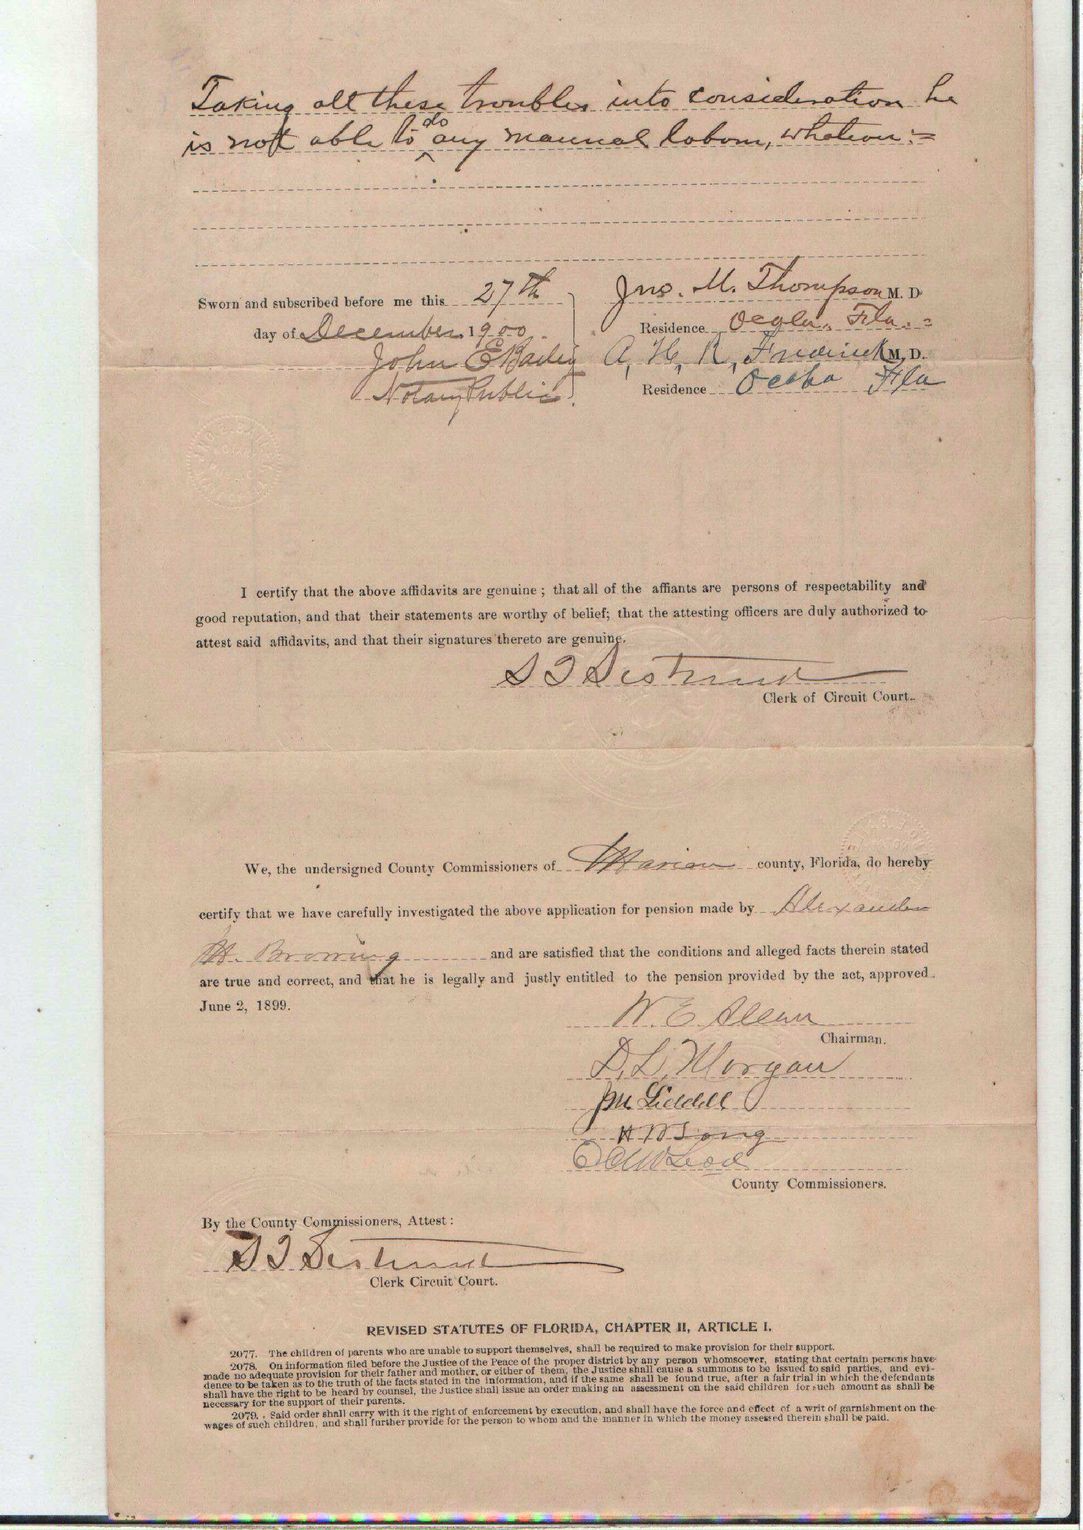 Taking all these troubles into consideration he
is not able to do any manual labour, whatever.=
Sworn and subscribed before me this 27th
day of December 1900.
John E Baily
Notary Public
Jno. M. Thompson M. D.
Residence Ocala, Fla.=
A, H, R, Frederick M, D.
Residence Ocala Fla
I certify that the above affidavits are genuine; that all of the affiants are persons of respectability and
good reputation, and that their statements are worthy of belief; that the attesting officers are duly authorized to
attest said affidavits, and that their signatures thereto are genuine.
S T Sistrunk
Clerk of Circuit Court.
We, the undersigned County Commissioners of Marion county, Florida, do hereby
certify that we have carefully investigated the above application for pension made by Alexander
H. Browning and are satisfied that the conditions and alleged facts therein stated
are true and correct, and that he is legally and justly entitled to the pension provided by the act, approved
June 2, 1899.
W. E. Allen
Chairman.
D. L. Morgan
JM Liddell
H W Long
County Commissioners.
By the County Commissioners, Attest:
S T Sistrunk
Clerk Circuit Court.
REVISED STATUTES OF FLORIDA, CHAPTER II, ARTICLE I.
2077. The children of parents who are unable to support themselves, shall be required to make provision for their support.
2078. On information filed before the Justice of the Peace of the proper district by any person whomsoever, stating that certain persons have
made no adequate provision for their father and mother, or either of them, the Justice shall cause a summons to be issued to said parties, and evi-
dence to be taken as to the truth of the facts stated in the information, and if the same shall be found true, after a fair trial in which the defendants
shall have the right to be heard by counsel, the Justice shall issue an order making an assessment on the said children for such amount as shall be
necessary for the support of their parents.
2079. Said order shall carry with it the right of enforcement by execution, and shall have the force and effect of a writ of garnishment on the
wages of such children, and shall further provide for the person to whom and the manner in which the money assessed therein shall be paid.